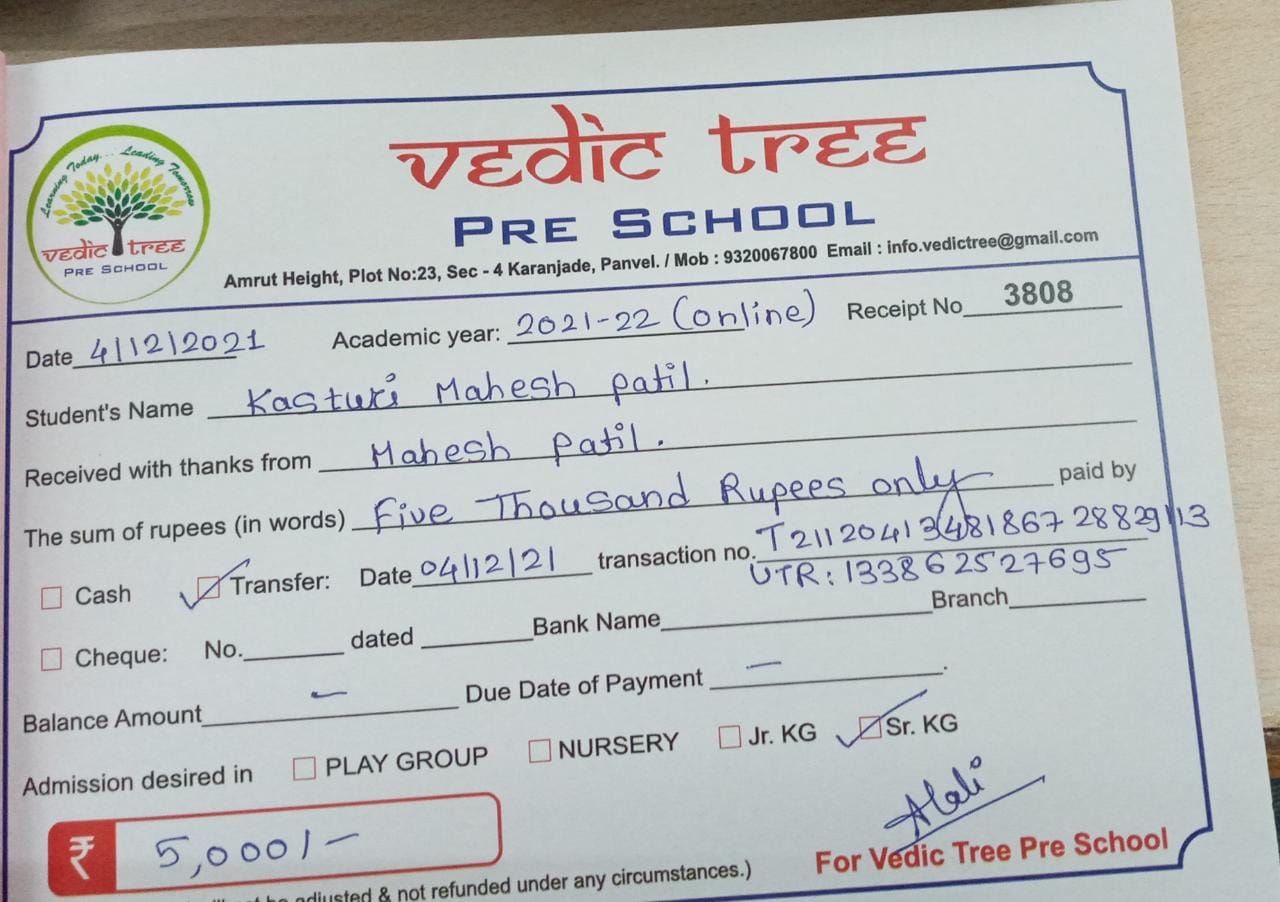 Learning Today... Leading Tomorrow
vedic tree
PRE SCHOOL
vedic tree
PRE SCHOOL
Amrut Height, Plot No:23, Sec - 4 Karanjade, Panvel. / Mob : 9320067800 Email : info.vedictree@gmail.com
Date 4/12/2021 Academic year: 2021-22 (online) Receipt No 3808
Student's Name Kasturi Mahesh patil.
Received with thanks from Mahesh patil.
The sum of rupees (in words) Five Thousand Rupees only paid by
Cash Transfer: Date 04/12/21 transaction no. T2112041348186728829113
UTR: 133862527695
Cheque: No. dated Bank Name Branch
Balance Amount - Due Date of Payment -
Admission desired in PLAY GROUP NURSERY Jr. KG Sr. KG
₹ 5,000/-
For Vedic Tree Pre School
adjusted & not refunded under any circumstances.)